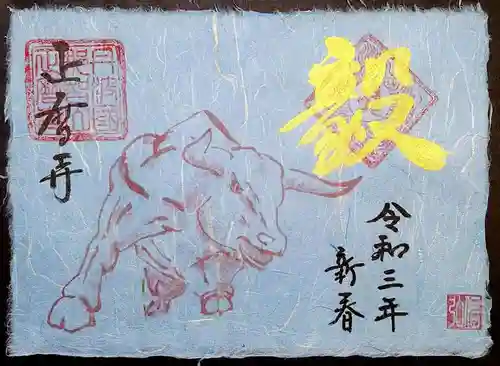 毅
令和三年
新春
正暦寺